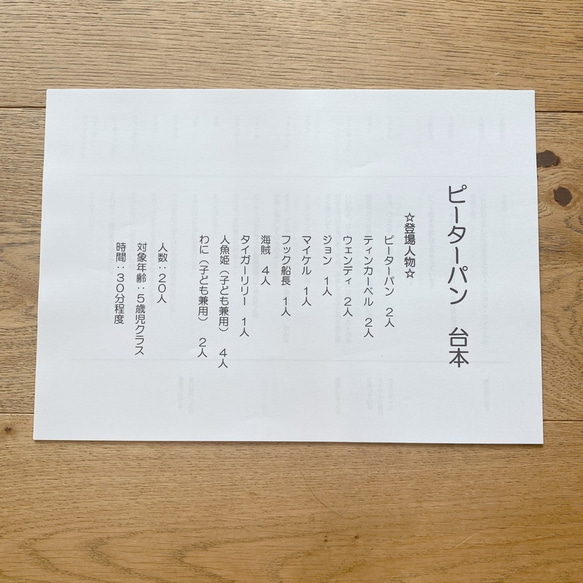 ピーターパン　台本
☆登場人物☆
ピーターパン　２人
ティンカーベル　２人
ウェンディ　２人
ジョン　１人
マイケル　１人
フック船長　１人
海賊　４人
タイガーリリー　１人
人魚姫（子ども兼用）　４人
わに（子ども兼用）　２人
人数：２０人
対象年齢：５歳児クラス
時間：３０分程度